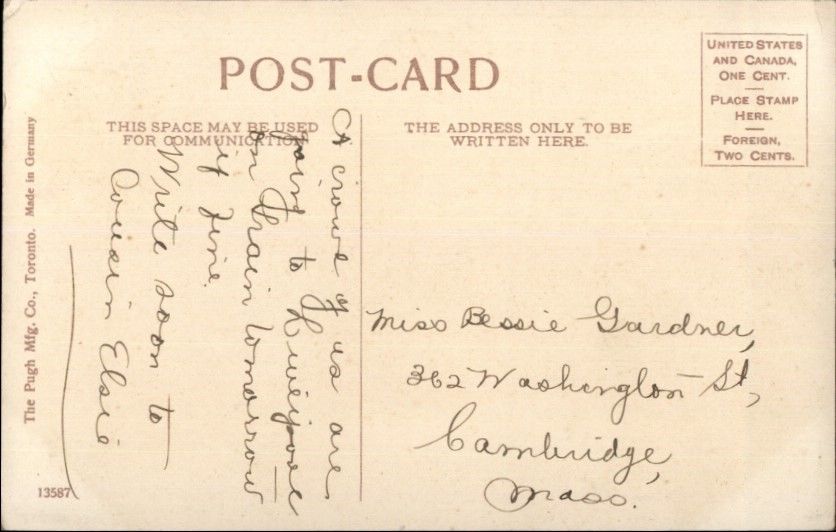 POST-CARD
THIS SPACE MAY BE USED
FOR COMMUNICATION
THE ADDRESS ONLY TO BE
WRITTEN HERE.
UNITED STATES
AND CANADA,
ONE CENT.
PLACE STAMP
HERE.
FOREIGN,
TWO CENTS.
A crowd of us are
going to Liverpool
on train tomorrow
if fine.
Write soon to
Cousin Elsie
Miss Bessie Gardner,
362 Washington St,
Cambridge,
Mass.
The Pugh Mfg. Co., Toronto. Made in Germany
13587